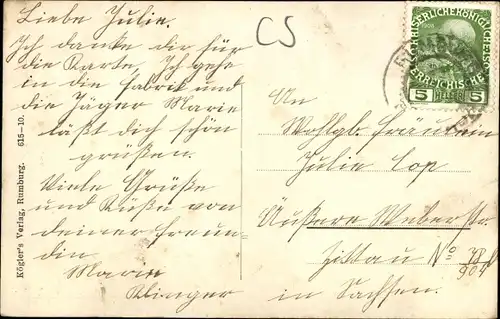 Liebe Julie.
Ich danke dir für
die Karte. Ich gehe
in die Fabrik und
die Jäger Marie
läßt dich schön
grüßen.
Viele Grüße
und Küße von
deiner Freun
din
Marie
Klinger
CS
Kögler's Verlag, Rumburg. 615-10.
KAISERLICHE KÖNIGLICHE
ÖSTERREICHISCHE
5 HELLER 5
An
Wohlgb. Fräulein
Julie Cop
Äußere Weberstr.
Zittau No 78
904
in Sachsen.